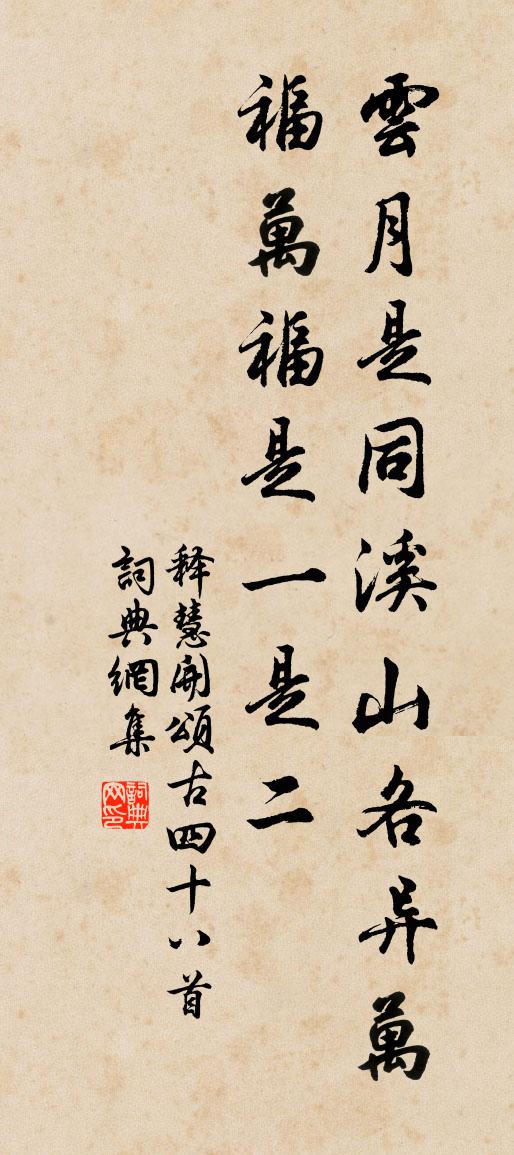 雲月是同溪山各异萬
福萬福是一是二
释慧開頌古四十八首
詞典網集
詞典网印